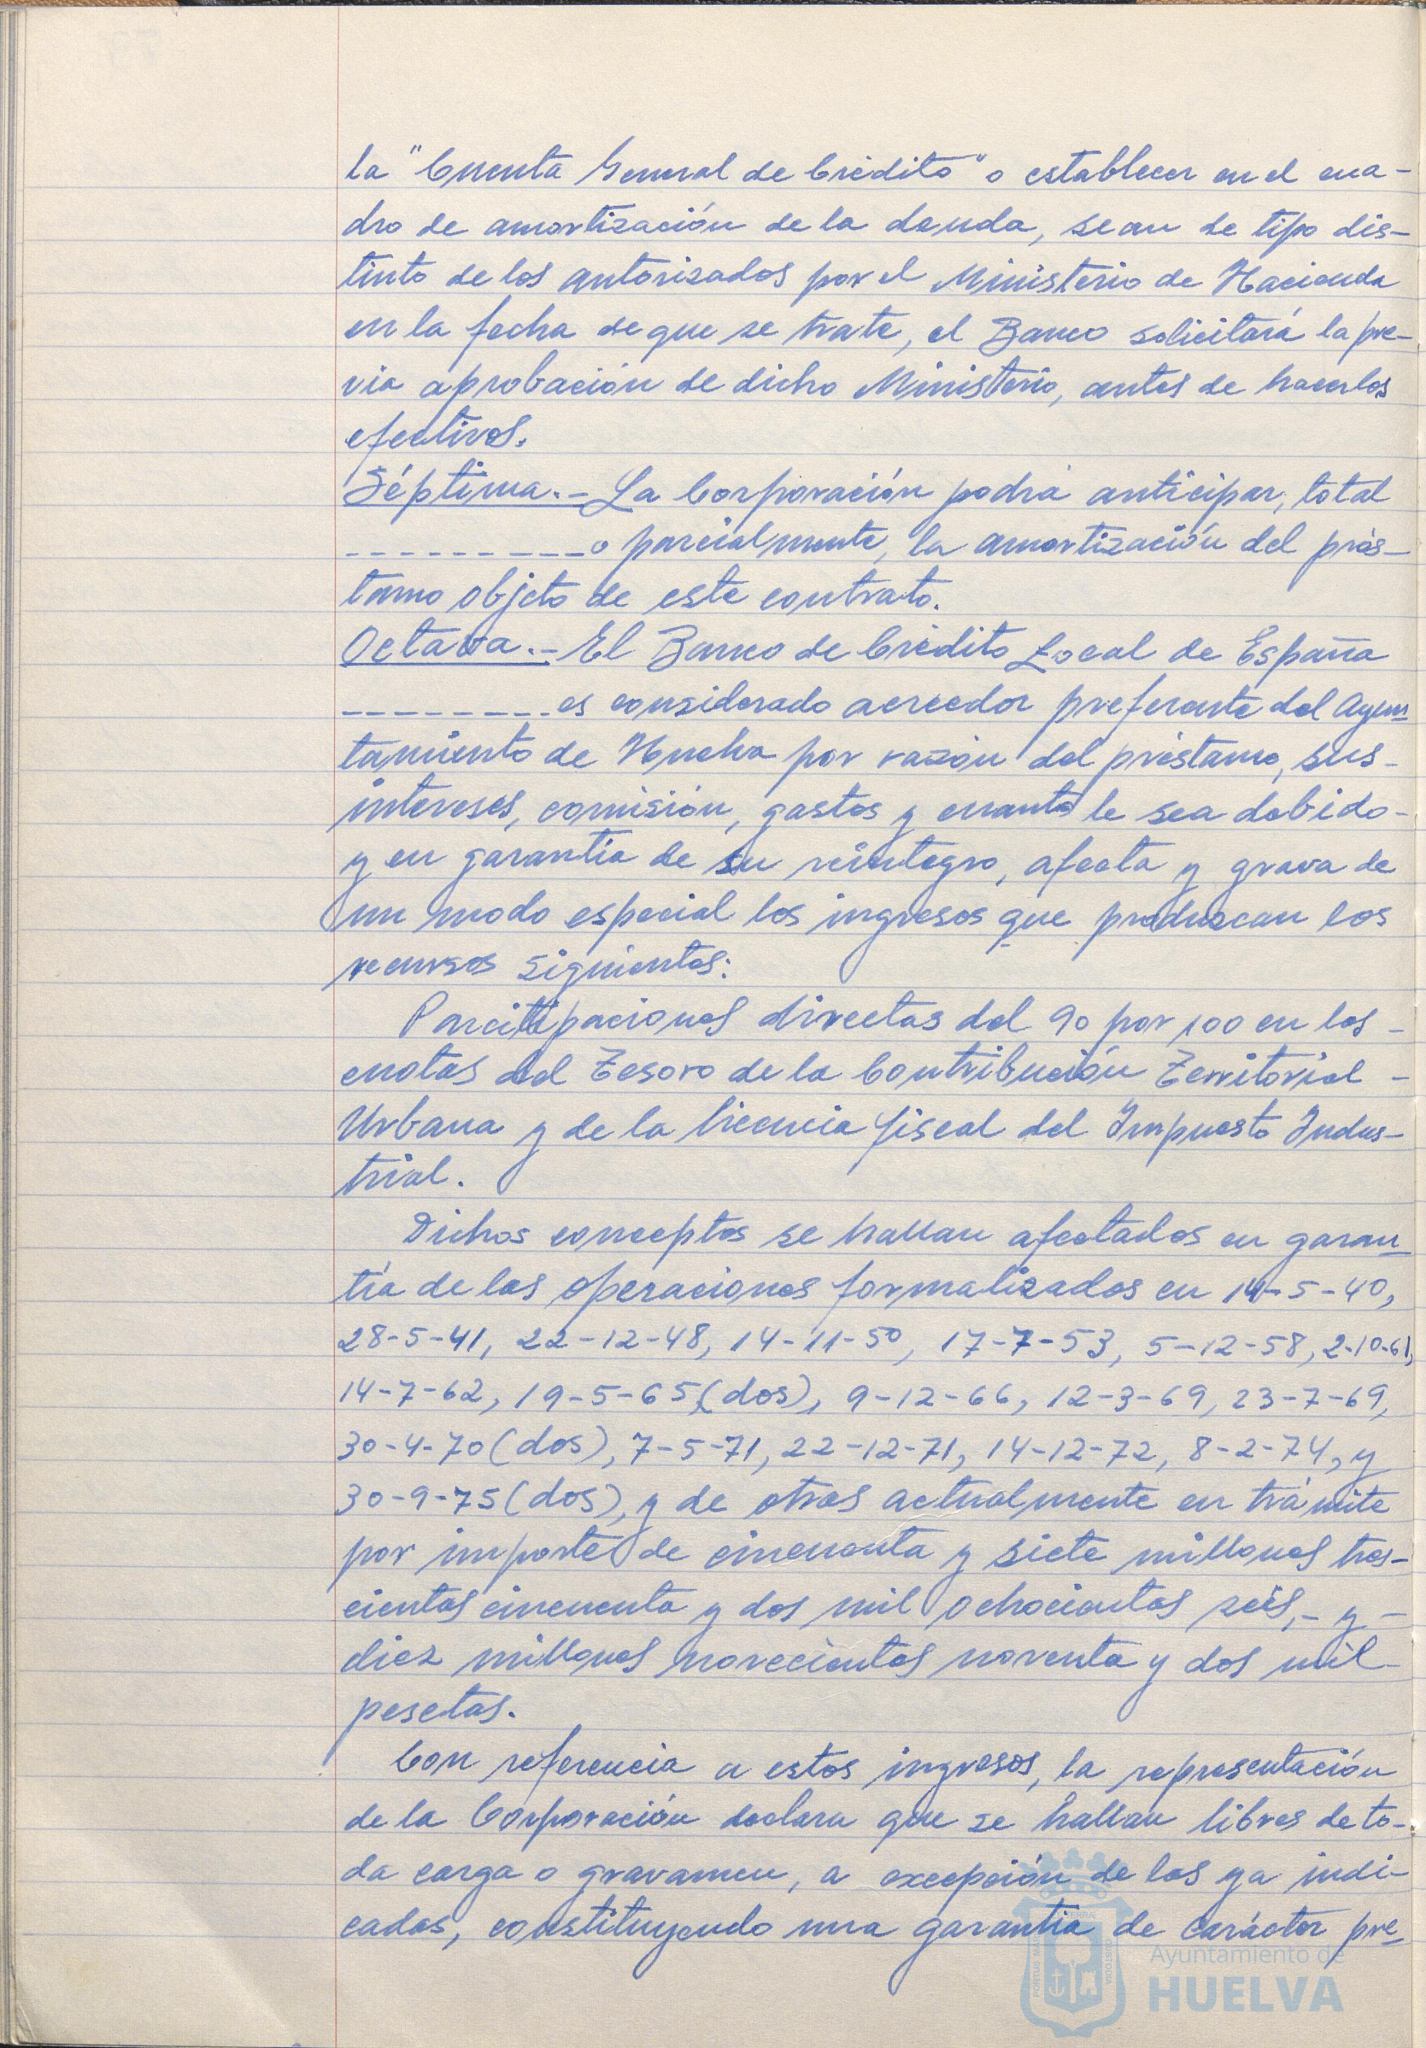 la "Cuenta General de Crédito" o establecer en el cua-
dro de amortización de la deuda, sean de tipo dis-
tinto de los autorizados por el Ministerio de Hacienda
en la fecha de que se trate, el Banco solicitará la pre-
via aprobación de dicho Ministerio, antes de hacerlos
efectivos.
Séptima.- La Corporación podrá anticipar, total
--------- o parcialmente, la amortización del prés-
tamo objeto de este contrato.
Octava.- El Banco de Crédito Local de España
-------- es considerado acreedor preferente del Ayun-
tamiento de Huelva por razón del préstamo, sus-
intereses, comisión, gastos y cuanto le sea debido-
y en garantía de su reintegro, afecta y grava de
un modo especial los ingresos que produzcan los
recursos siguientes:
Parcitipaciones directas del 90 por 100 en las-
cuotas del Tesoro de la Contribución Territorial-
Urbana y de la licencia fiscal del Impuesto Indus-
trial.
Dichos conceptos se hallan afectados en garan-
tía de las operaciones formalizadas en 14-5-40,
28-5-41, 22-12-48, 14-11-50, 17-7-53, 5-12-58, 2-10-61,
14-7-62, 19-5-65 (dos), 9-12-66, 12-3-69, 23-7-69,
30-4-70 (dos), 7-5-71, 22-12-71, 14-12-72, 8-2-74, y
30-9-75 (dos), y de otras actualmente en trámite
por importe de cincuenta y siete millones tres-
cientas cincuenta y dos mil ochocientas seis,- y-
diez millones novecientas noventa y dos mil-
pesetas.
Con referencia a estos ingresos, la representación
de la Corporación declara que se hallan libres de to-
da carga o gravamen, a excepción de las ya indi-
cadas, constituyendo una garantía de carácter pre-
Ayuntamiento de
HUELVA